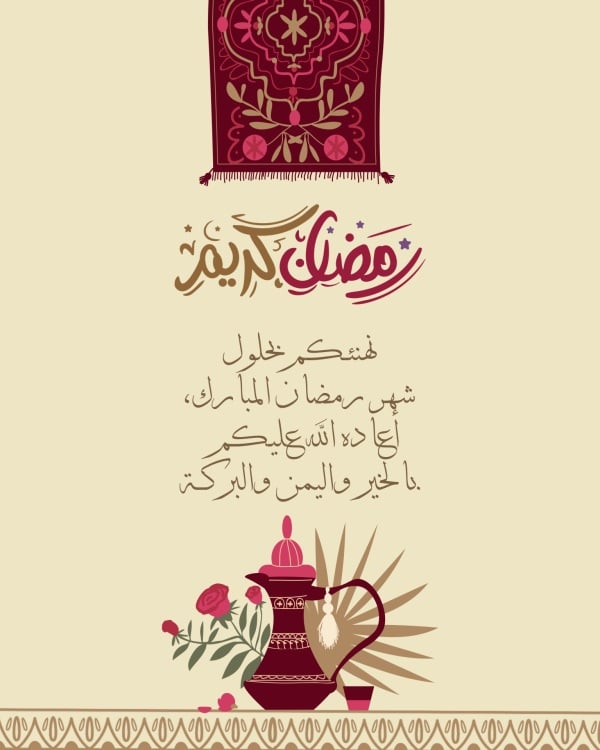 رمضان كريم
نهنئكم بحلول
شهر رمضان المبارك،
أعاده الله عليكم
بالخير واليمن والبركة